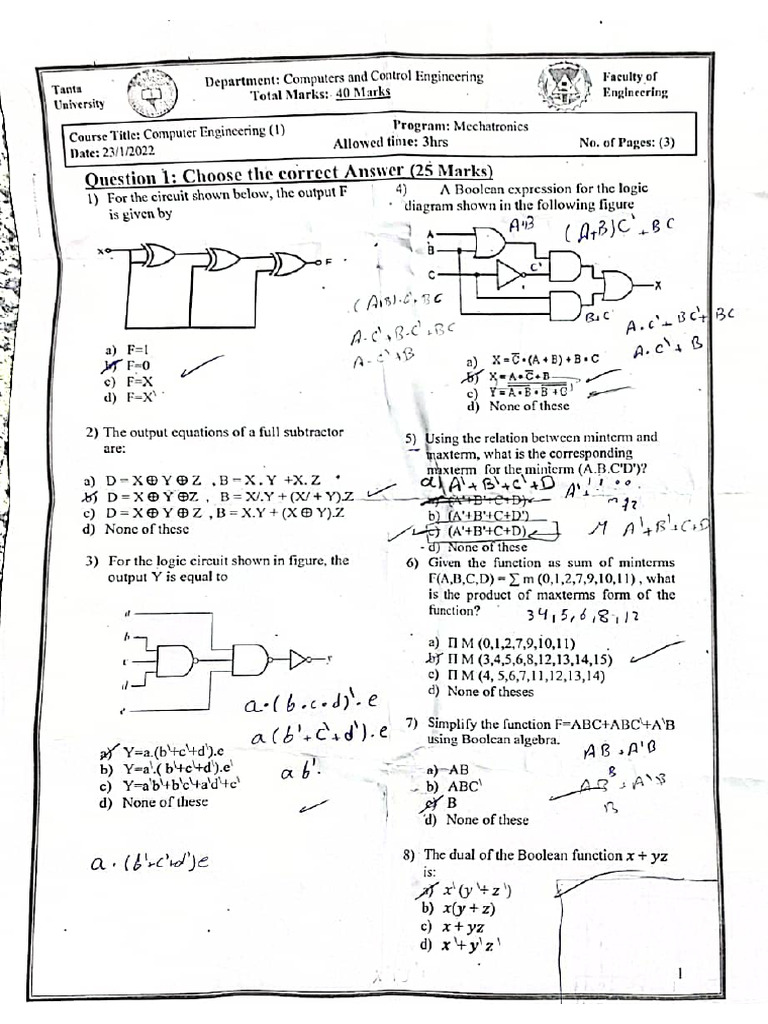 Tanta
University
Department: Computers and Control Engineering
Total Marks: 40 Marks
Faculty of
Engineering
Course Title: Computer Engineering (1)
Date: 23/1/2022
Program: Mechatronics
Allowed time: 3hrs
No. of Pages: (3)
Question 1: Choose the correct Answer (25 Marks)
1) For the circuit shown below, the output F
is given by
X
F
a) F=1
b) F=0
c) F=X
d) F=X\
2) The output equations of a full subtractor
are:
a) D = X⊕Y⊕Z , B = X.Y +X.Z
b) D = X⊕Y⊕Z , B = X/.Y + (X/ + Y).Z
c) D = X⊕Y⊕Z , B = X.Y + (X⊕Y).Z
d) None of these
3) For the logic circuit shown in figure, the
output Y is equal to
a
b
c
d
e
Y
a.(b.c.d)'.e
a(b'+c'+d').e
ab'.
a) Y=a.(b\+c\+d\).e
b) Y=a\.( b\+c\+d\).e\
c) Y=a\b\+b\c\+a\d\+c\
d) None of these
a.(b'+c'+d')e
4) A Boolean expression for the logic
diagram shown in the following figure
(A+B)C'+BC
A
B
C
C'
X
A.C'+B.C'+BC
A-C'+B
A.C'+BC'+BC
A.C'+B
a) X = C̅•(A + B) + B•C
b) X = A•C̅+B
d) None of these
5) Using the relation between minterm and
maxterm, what is the corresponding
maxterm for the minterm (A.B.C'D')?
a) A'+B'+C+D
a) (A'+B'+C+D)
b) (A'+B'+C+D')
c) (A'+B'+C+D)
d) None of these
M A'+B'+C+D
6) Given the function as sum of minterms
F(A,B,C,D) = ∑ m (0,1,2,7,9,10,11) , what
is the product of maxterms form of the
function?
3 4, 5, 6, 8, 12
a) Π M (0,1,2,7,9,10,11)
b) Π M (3,4,5,6,8,12,13,14,15)
c) Π M (4, 5,6,7,11,12,13,14)
d) None of theses
7) Simplify the function F=ABC+ABC\+A\B
using Boolean algebra.
AB+A'B
a) AB
b) ABC\
c) B
d) None of these
AB+A'B
B
8) The dual of the Boolean function x + yz
is:
a) x\(y\+z\)
b) x(y + z)
c) x + yz
d) x\+ y\z\
1